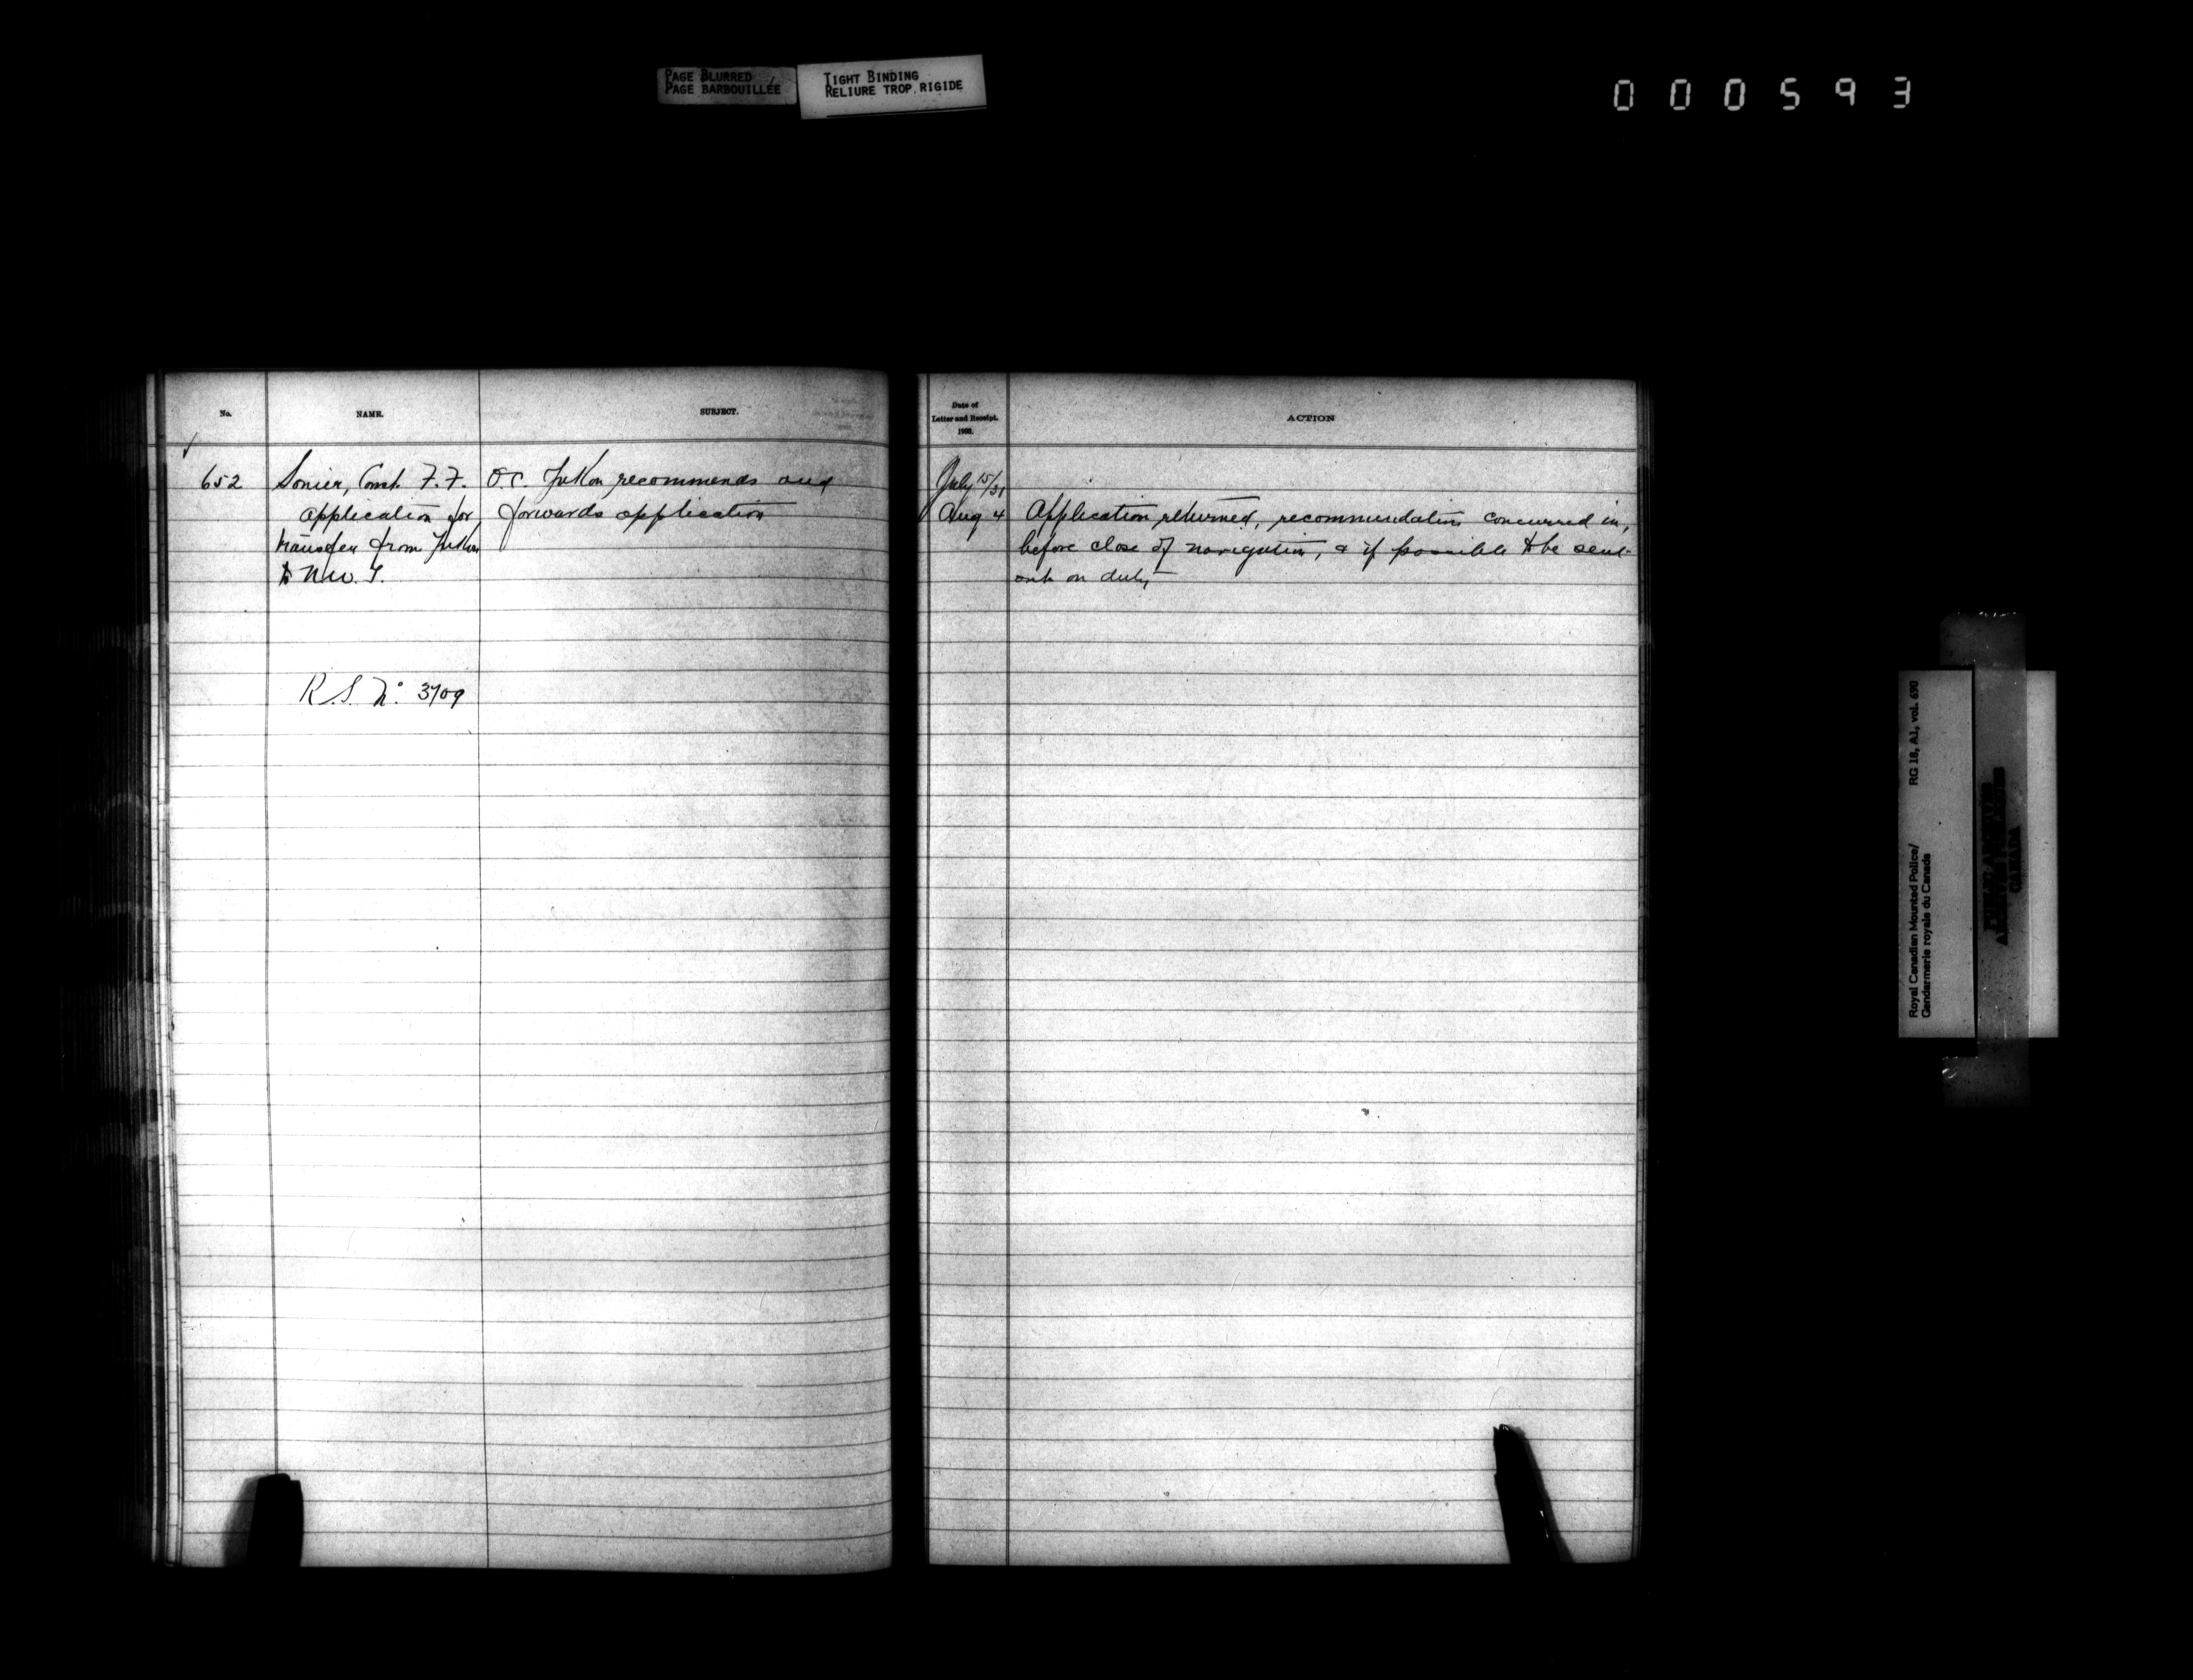 PAGE BLURRED
PAGE BARBOUILLÉE
TIGHT BINDING
RELIURE TROP RIGIDE
000593
No.
NAME.
SUBJECT.
652
Sonier, Const. F. F.
application for
transfer from Yukon
to N.W.T.
R.S. No. 3709
O.C. Yukon recommends and
forwards application
Date of
Letter and Receipt.
1903.
ACTION
July 15/31
Aug 4
Application returned, recommendation concurred in,
before close of navigation, & if possible to be sent
out on duty
Royal Canadian Mounted Police/
Gendarmerie royale du Canada
RG 18, A1, vol. 690
PUBLIC ARCHIVES
ARCHIVES PUBLIQUES
CANADA